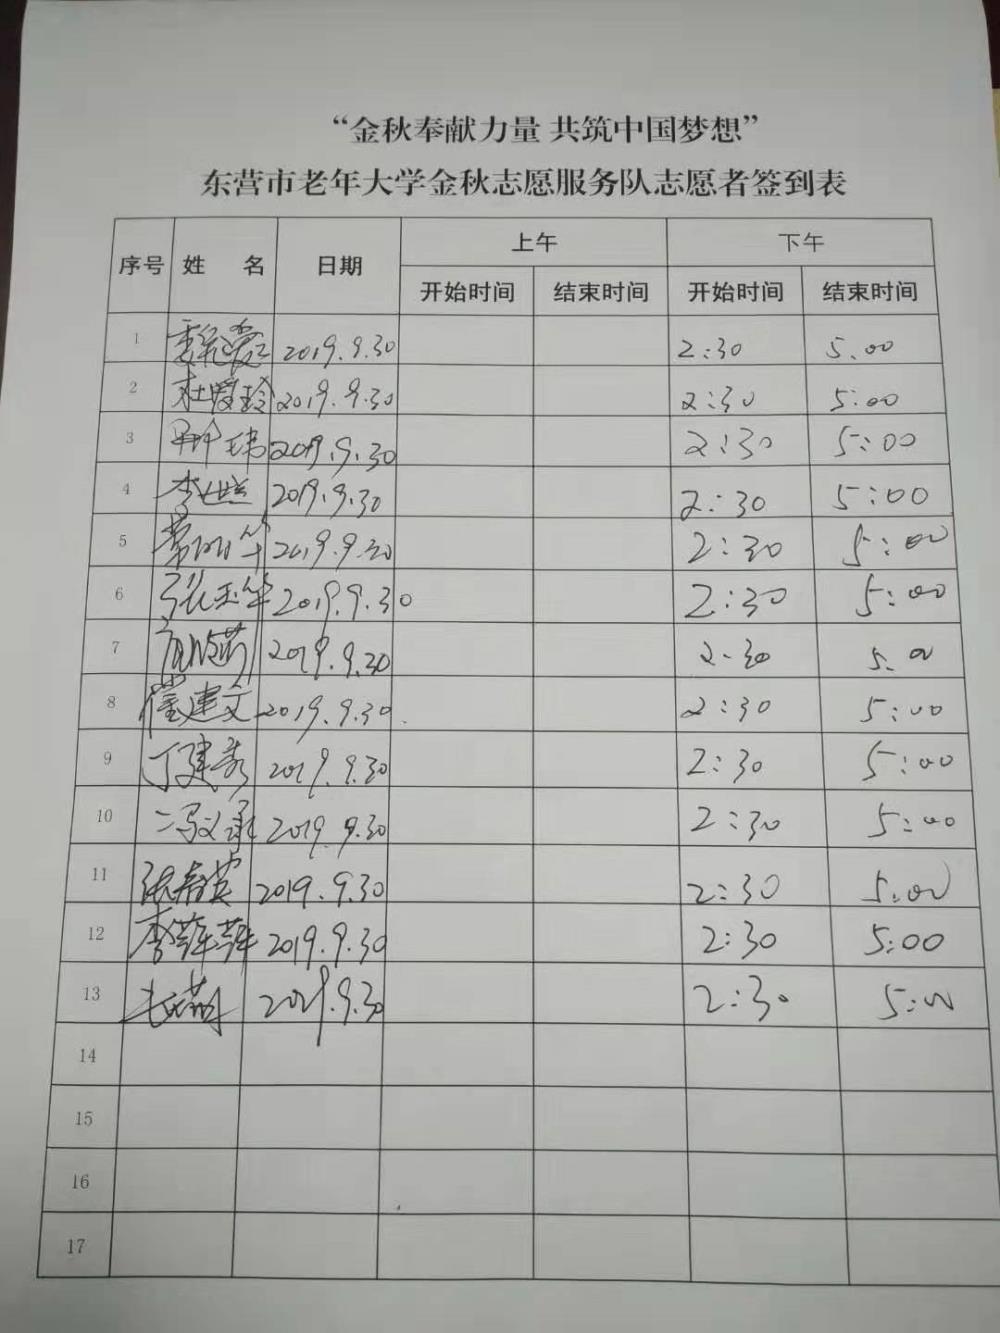 “金秋奉献力量 共筑中国梦想”
东营市老年大学金秋志愿服务队志愿者签到表
序号 姓 名 日期 上午 下午
开始时间 结束时间 开始时间 结束时间
1 2019.9.30 2:30 5.00
2 杜爱玲 2019.9.30 2:30 5:00
3 2019.9.30 2:30 5:00
4 李 2019.9.30 2:30 5:00
5 华 2019.9.30 2:30 5:00
6 张玉华 2019.9.30 2:30 5:00
7 2019.9.30 2.30 5.00
8 崔建文 2019.9.30 2:30 5:00
9 丁建秀 2019.9.30 2:30 5:00
10 2019.9.30 2:30 5:00
11 张春英 2019.9.30 2:30 5:00
12 李萍萍 2019.9.30 2:30 5:00
13 2019.9.30 2:30 5:00
14
15
16
17